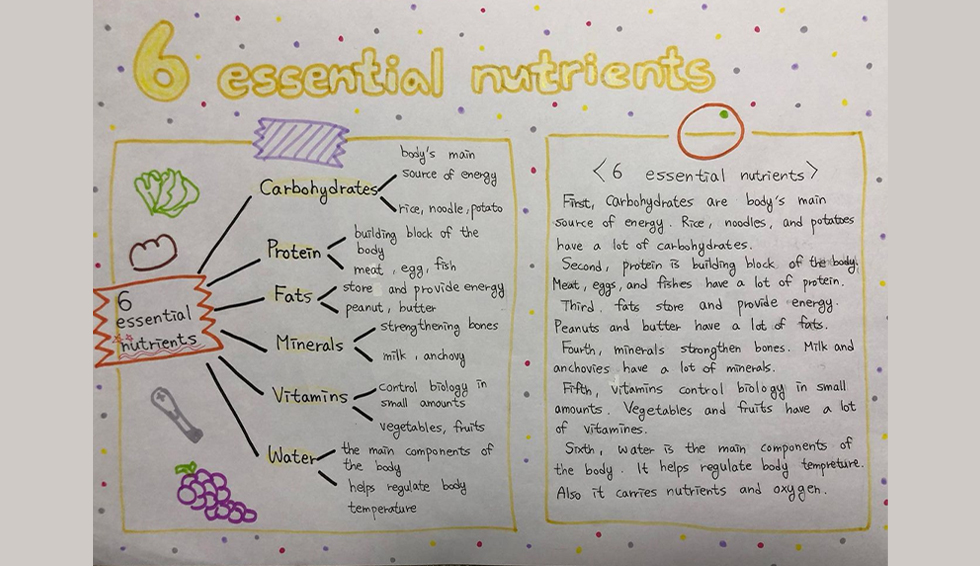 6 essential nutrients
body's main
source of energy
Carbohydrates
rice, noodle, potato
building block of the
body
Protein
meat, egg, fish
store and provide energy
Fats
peanut, butter
strengthening bones
Minerals
milk, anchovy
control biology in
small amounts
Vitamins
vegetables, fruits
the main components of
the body
Water
helps regulate body
temperature
6
essential
nutrients
<6 essential nutrients>
First, Carbohydrates are body's main
source of energy. Rice, noodles, and potatoes
have a lot of carbohydrates.
Second, protein is building block of the body.
Meat, eggs, and fishes have a lot of protein.
Third. fats store and provide energy.
Peanuts and butter have a lot of fats.
Fourth, minerals strengthen bones. Milk and
anchovies have a lot of minerals.
Fifth, vitamins control biology in small
amounts. Vegetables and fruits have a lot
of vitamines.
Sixth, water is the main components of
the body. It helps regulate body tempreture.
Also it carries nutrients and oxygen.